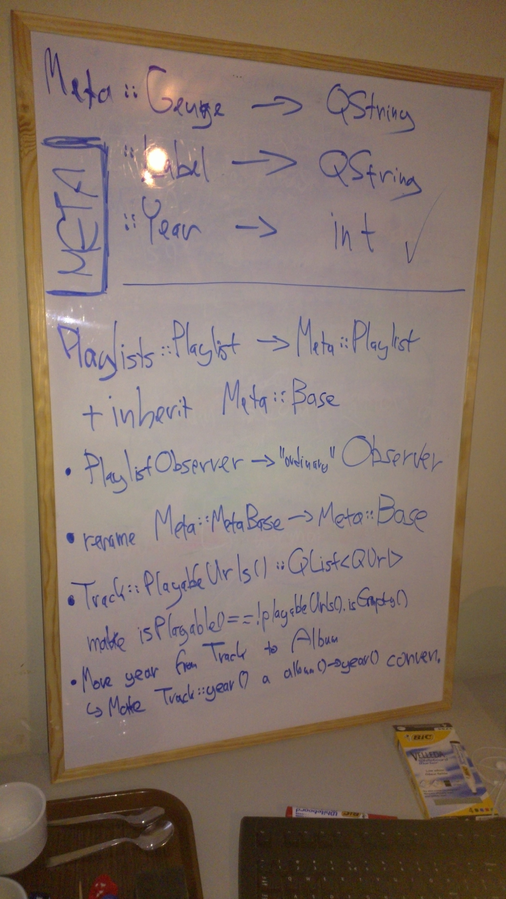 Meta :: Genge → QString
:: Label → QString
:: Year → int ✓
META
Playlists::Playlist → Meta::Playlist
+ inherit Meta::Base
• PlaylistObserver → "ordinary" Observer
• rename Meta::MetaBase → Meta::Base
• Track::PlayabeUrls() :: QList<QUrl>
make isPlayable() == !playabeUrls().isEmpty()
• Move year from Track to Album
↳ Make Track::year() a album()→year() conven.
BIC
VELLEDA